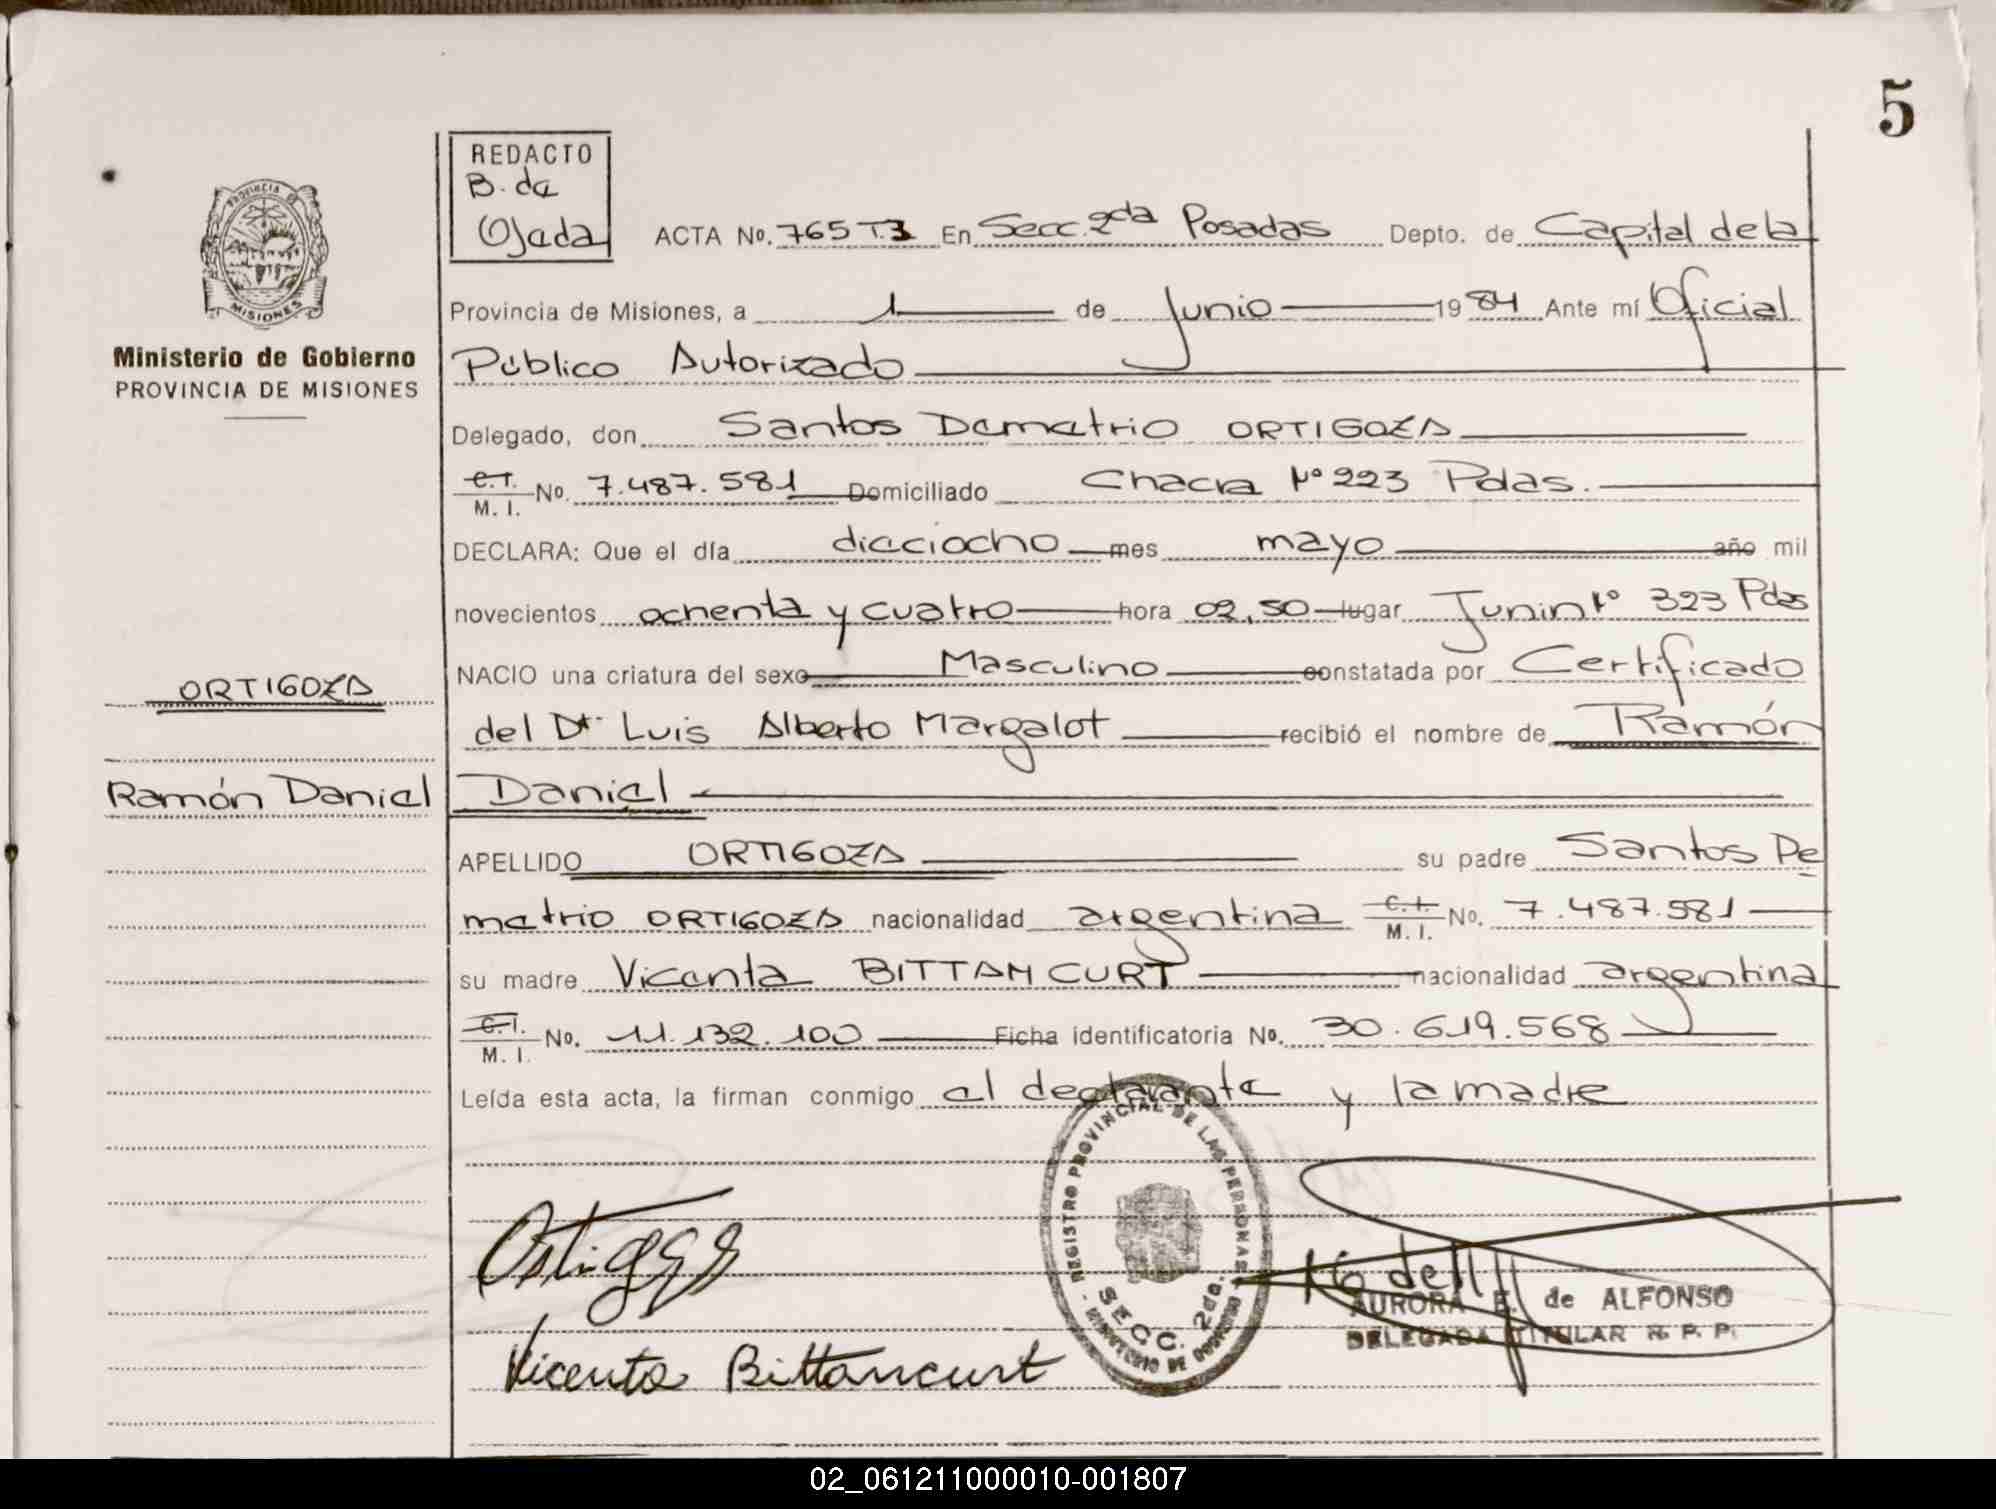 5
REDACTO
B. de
Ojeda
ACTA No. 765 T.3 En Secc. 2da Posadas Depto. de Capital de la
Provincia de Misiones, a 1 de Junio 1984 Ante mí Oficial
Público Autorizado
PROVINCIA DE
MISIONES
Ministerio de Gobierno
PROVINCIA DE MISIONES
Delegado, don Santos Demetrio ORTIGOZA
C.I.
M. I. No. 7.487.581 Domiciliado Chacra Nº 223 Pdas.
DECLARA: Que el día dieciocho mes mayo año mil
novecientos ochenta y cuatro hora 02,50 lugar Junin Nº 323 Pdas
NACIO una criatura del sexo Masculino constatada por Certificado
ORTIGOZA
del Dr. Luis Alberto Margalot recibió el nombre de Ramón
Ramón Daniel
Daniel
APELLIDO ORTIGOZA su padre Santos De
metrio ORTIGOZA nacionalidad argentina C.I.
M. I. No. 7.487.581
su madre Vicenta BITTANCURT nacionalidad argentina
C.I.
M. I. No. 11.132.100 Ficha identificatoria No. 30.619.568
Leída esta acta, la firman conmigo el declarante y la madre
REGISTRO PROVINCIAL DE LAS PERSONAS
SECC. 2da.
MINISTERIO DE GOBIERNO
Vicenta Bittancurt
AURORA E. de ALFONSO
DELEGADA TITULAR R. P. P.
02_061211000010-001807